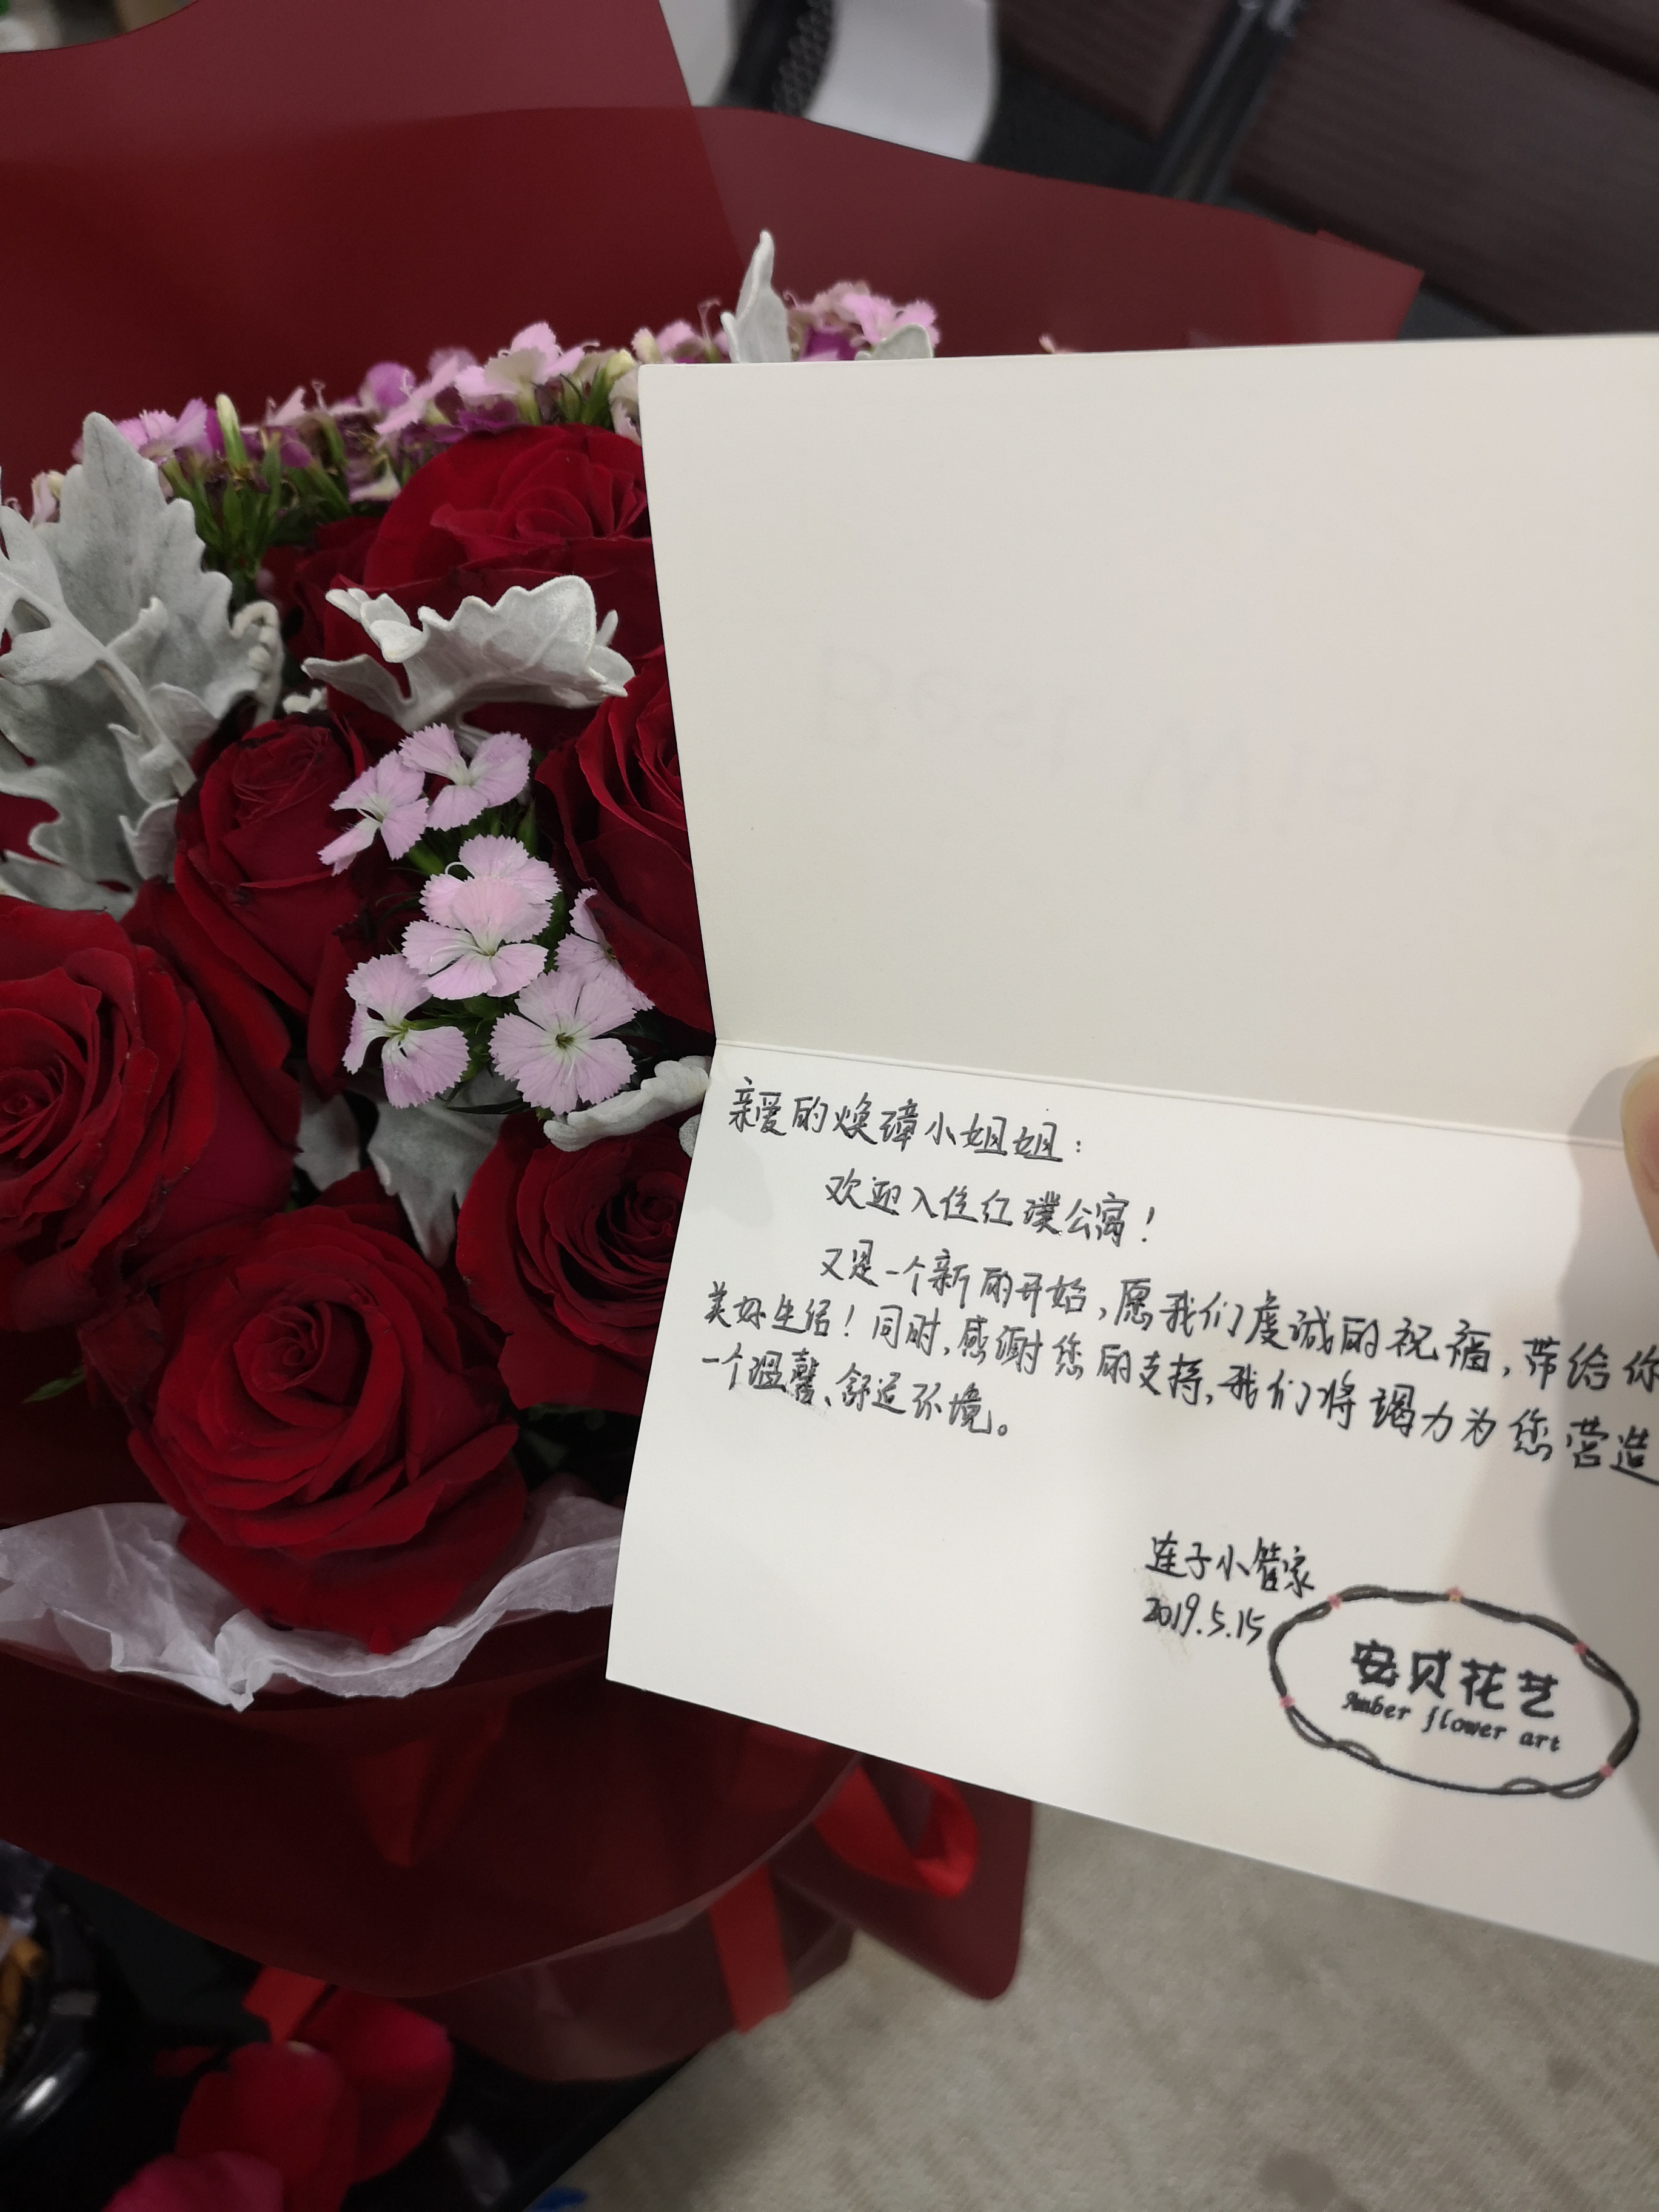 亲爱的焕璋小姐姐：
欢迎入住红璞公寓！
又是一个新的开始，愿我们虔诚的祝福，带给你
美好生活！同时，感谢您的支持，我们将竭力为您营造
一个温馨、舒适环境。
连子小管家
2019.5.15
安贝花艺
Amber flower art